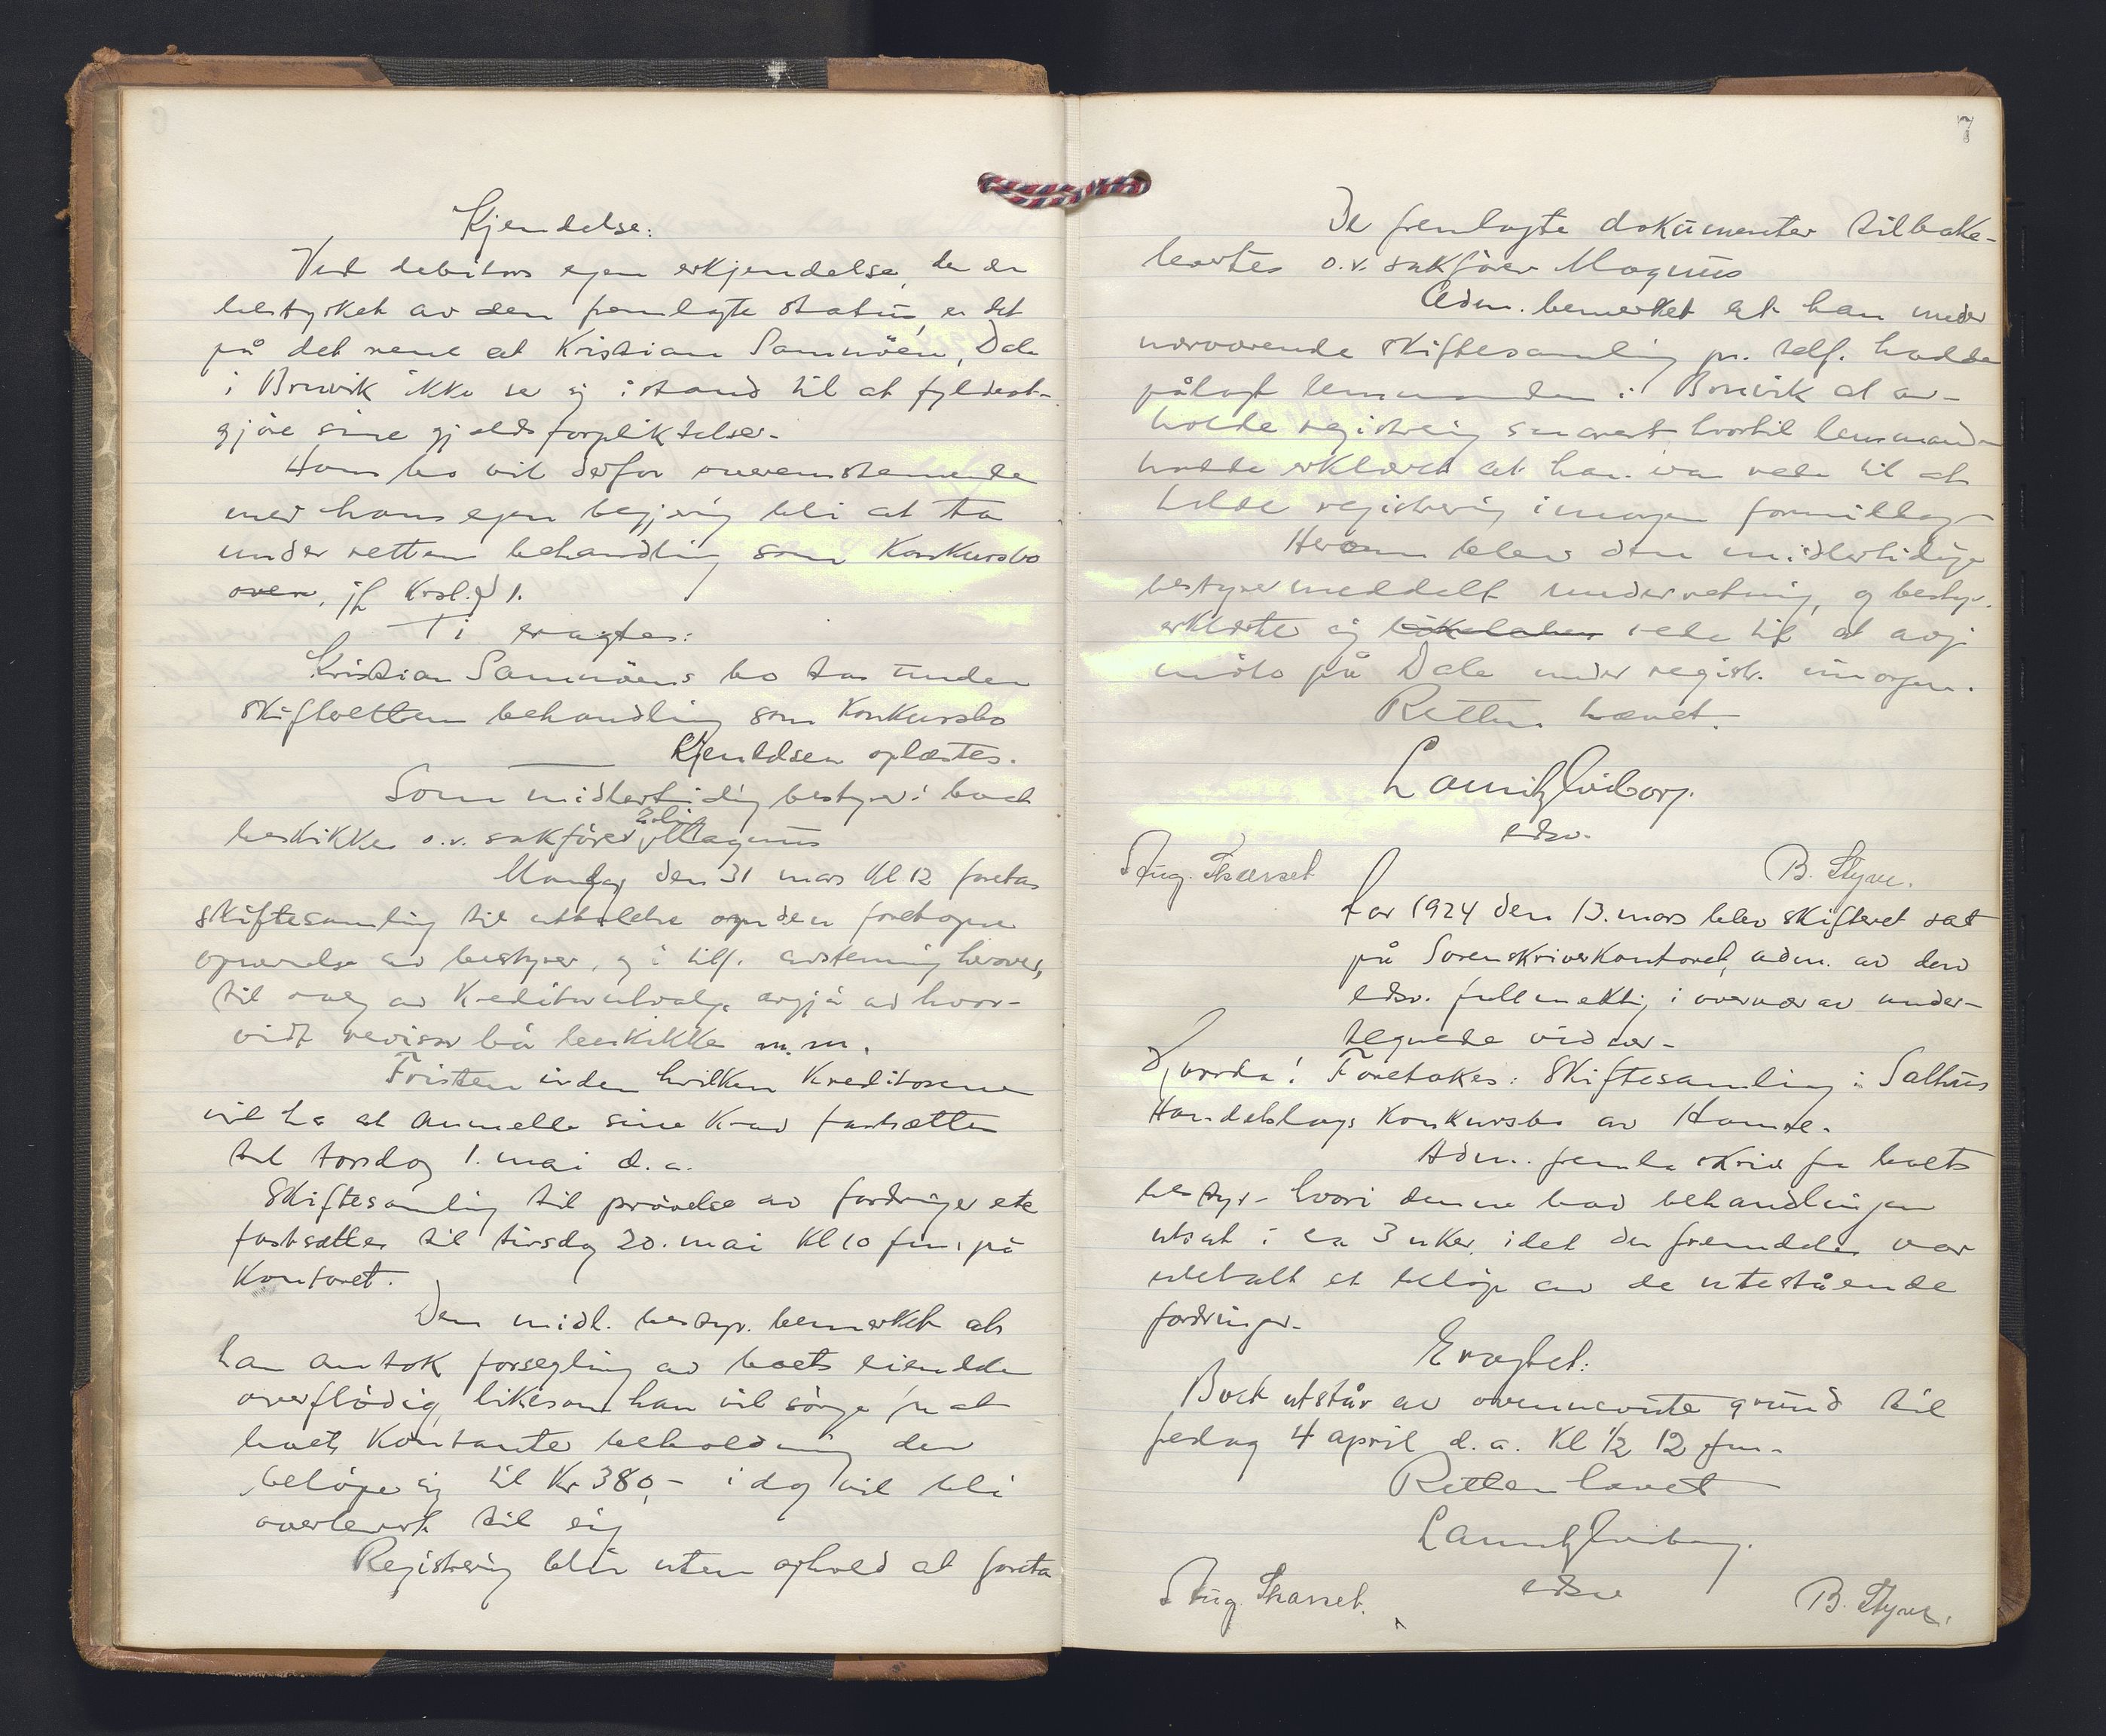 Kjendelse:
Ved debitors egen erkjendelse, der er
bestyrket av den fremlagte status, er det
på det rene at Kristian Samnöen, Dale
i Bruvik ikke ser sig istand til at fyldest-
gjöre sine gjeldsforpliktelser.
Hans bo vil derfor overensstemmende
med hans egen begjæring bli at ta
under rettens behandling som konkursbo
oven, jf Krsl. § 1.
Ti eragtes:
Kristian Samnöens bo tas under
skifterettens behandling som konkursbo
Kjendelsen oplæstes.
Som midlertidig bestyrer i boet
beskikkes o.r. sakförer Magnus
Mandag den 31 mars kl 12 foretas
skiftesamling til uttalelse om den foretagne
opnævnelse av bestyrer, og i tilf. avstemning herover,
til valg av kreditorutvalg, avgjörelse av hvor-
vidt revisor bör beskikkes m.m.
Fristen inden hvilken kreditorene
vil ha at anmelde sine krav fastsættes
til torsdag 1. mai d.a.
Skiftesamling til prövelse av fordringer etc
fastsættes til tirsdag 20. mai kl 10 fm. på
kontoret.
Den midl. bestyr. bemerket at
han antok forsegling av boets eiendele
overflödig, likesom han vil sörge for at
boets kontante beholdning der
belöper sig til kr 380,- idag vil bli
overlevert til sig
Registrering blir uten ophold at foreta
7
De fremlagte dokumenter tilbake-
leveres o.r. sakförer Magnus
Adm. bemerket at han under
nærværende skiftesamling pr. telf. hadde
pålagt lensmanden i Bruvik at av-
holde registrering snarest hvortil lensmanden
hadde erklæret at han var rede til at
holde registrering imorgen formiddag
Herom blev den midlertidige
bestyrer meddelt underretning, og bestyr.
erklærte sig rede til at avgi
möte på Dale under registr. imorgen.
Retten hævet.
Lauritz Wiborg.
edsv.
Aug. Skarset B. Styve.
Aar 1924 den 13. mars blev skifteret sat
på Sorenskriverkontoret, adm. av den
edsv. fullmektig i overvær av under-
tegnede vidner.
Hvorda! Foretokes: Skiftesamling i Salhus
Handelslags konkursbo av Hamre.
Adm. fremla skriv fra boets
bestyr. hvori denne bad behandlingen
utsat i ca 3 uker, idet der fremdeles var
ubetalt et belöp av de utestående
fordringer.
Eragtet:
Boet utstår av ovennevnte grund til
fredag 4 april d.a. kl ½ 12 fm.
Retten hævet
Lauritz Wiborg.
edsv
Aug. Skarset. B. Styve.